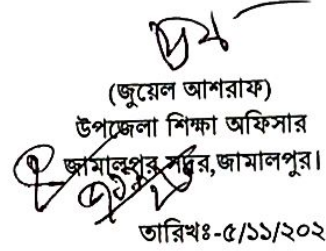 (জুয়েল আশরাফ)
উপজেলা শিক্ষা অফিসার
জামালপুর সদর,জামালপুর।
তারিখঃ-৫/১১/২০২